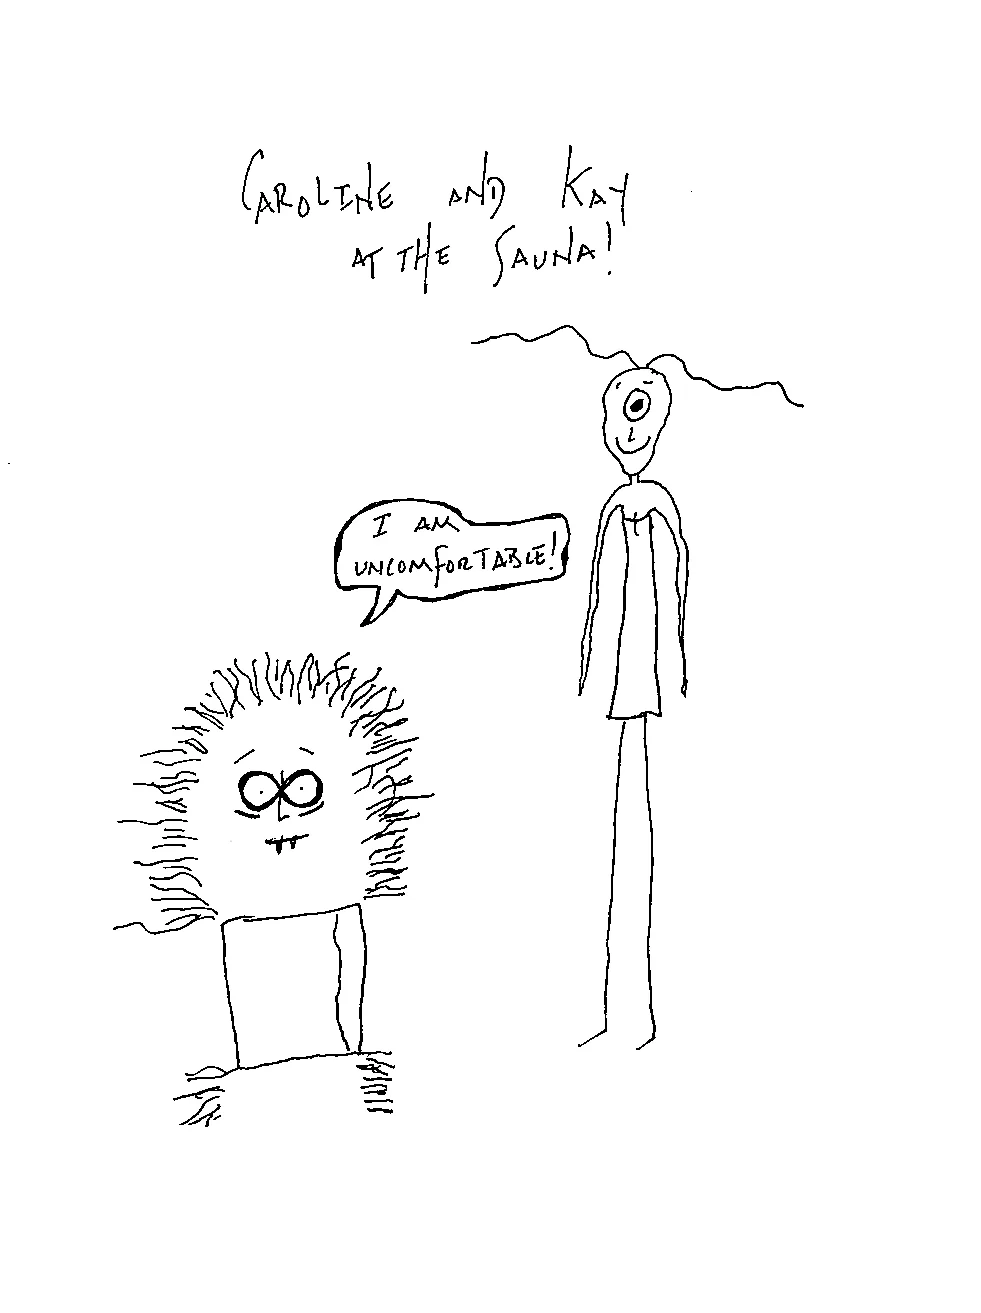 CAROLINE AND KAY
AT THE SAUNA!
I AM
UNCOMFORTABLE!